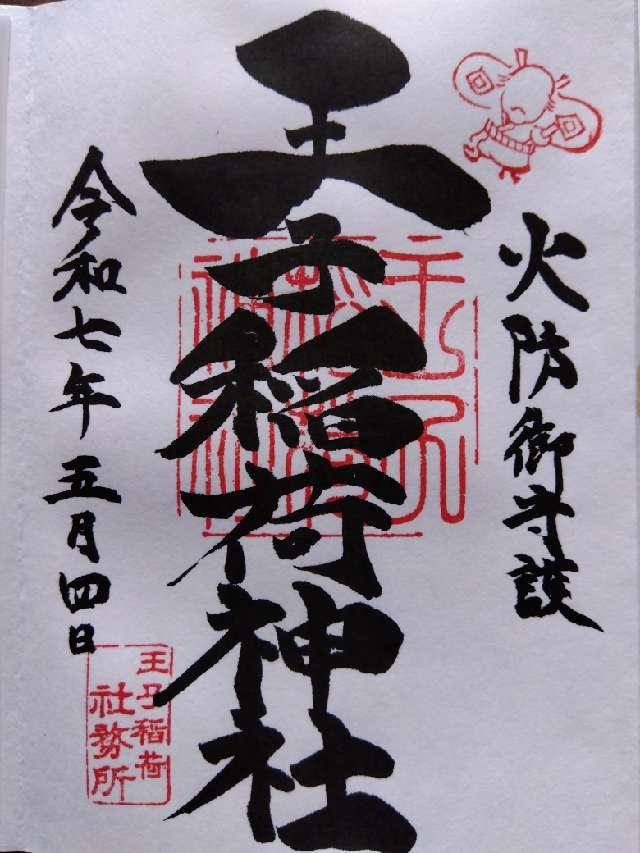 火防御守護
王子稲荷神社
令和七年五月四日
王子稲荷
社務所